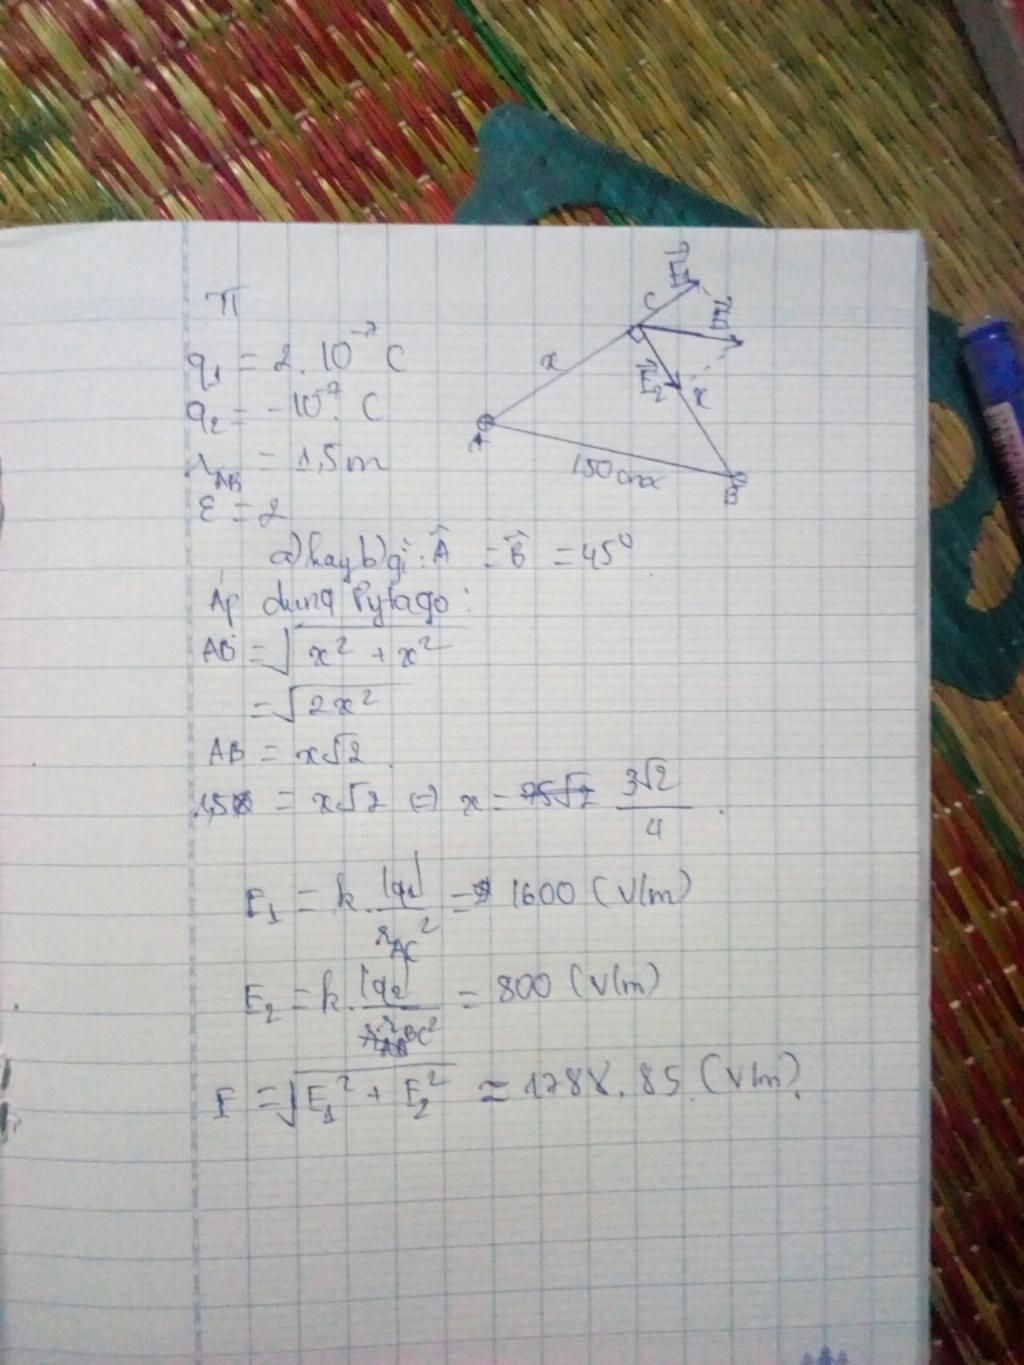 TT
q₁ = 2.10⁻⁷ C
q₂ = -10⁻⁷ C
r_AB = 1,5m
ε = 2
E₁
C
x
E₂
x
A
150cm
B
a) hay b) gì: Â = B̂ = 45°
Áp dụng Pytago:
AB = √(x² + x²)
= √(2x²)
AB = x√2.
1,5 = x√2 ⇔ x = 3√2/4.
E₁ = k.|q₁|/r_AC² = 1600 (V/m)
E₂ = k.|q₂|/r_BC² = 800 (V/m)
E = √(E₁² + E₂²) ≈ 1788.85 (V/m).